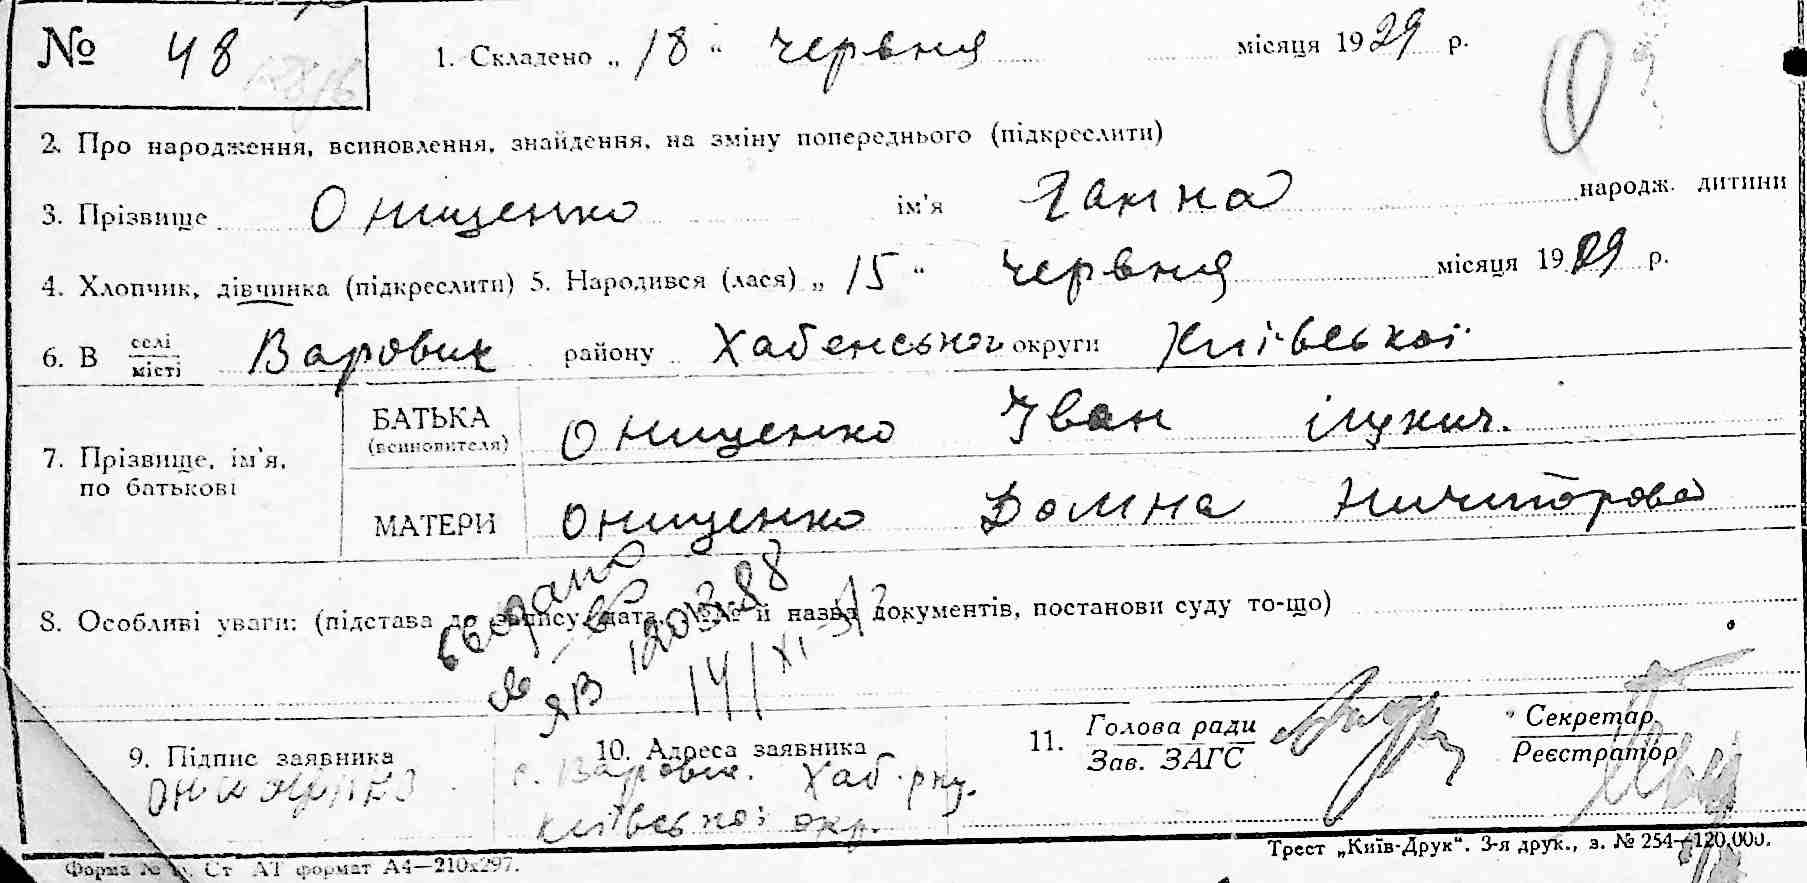 № 48 1. Складено „ 18 “ червня місяця 1929 р.
2. Про народження, всиновлення, знайдення, на зміну попереднього (підкреслити)
3. Прізвище Онищенко ім’я Ганна народж. дитини
4. Хлопчик, дівчинка (підкреслити) 5. Народився (лася) „ 15 “ червня місяця 1929 р.
6. В селі
місті Варовик району Хабенського округи Київської
7. Прізвище, ім’я,
по батькові
БАТЬКА
(всиновителя)
Онищенко Іван Лукич.
МАТЕРИ Онищенко Домна Ничипорова
8. Особливі уваги: (підстава до запису, дата, №№ й назва документів, постанови суду то-що)
ЯВ 120388
14/XI-
9. Підпис заявника
Онищенко
10. Адреса заявника
с. Варовик. Хаб. р-ну.
Київської окр.
11. Голова ради
Зав. ЗАГС
Секретар
Реєстратор
Форма № Ст АТ формат А4—210x297.
Трест „Київ-Друк“. 3-я друк., з. № 254—120.000.